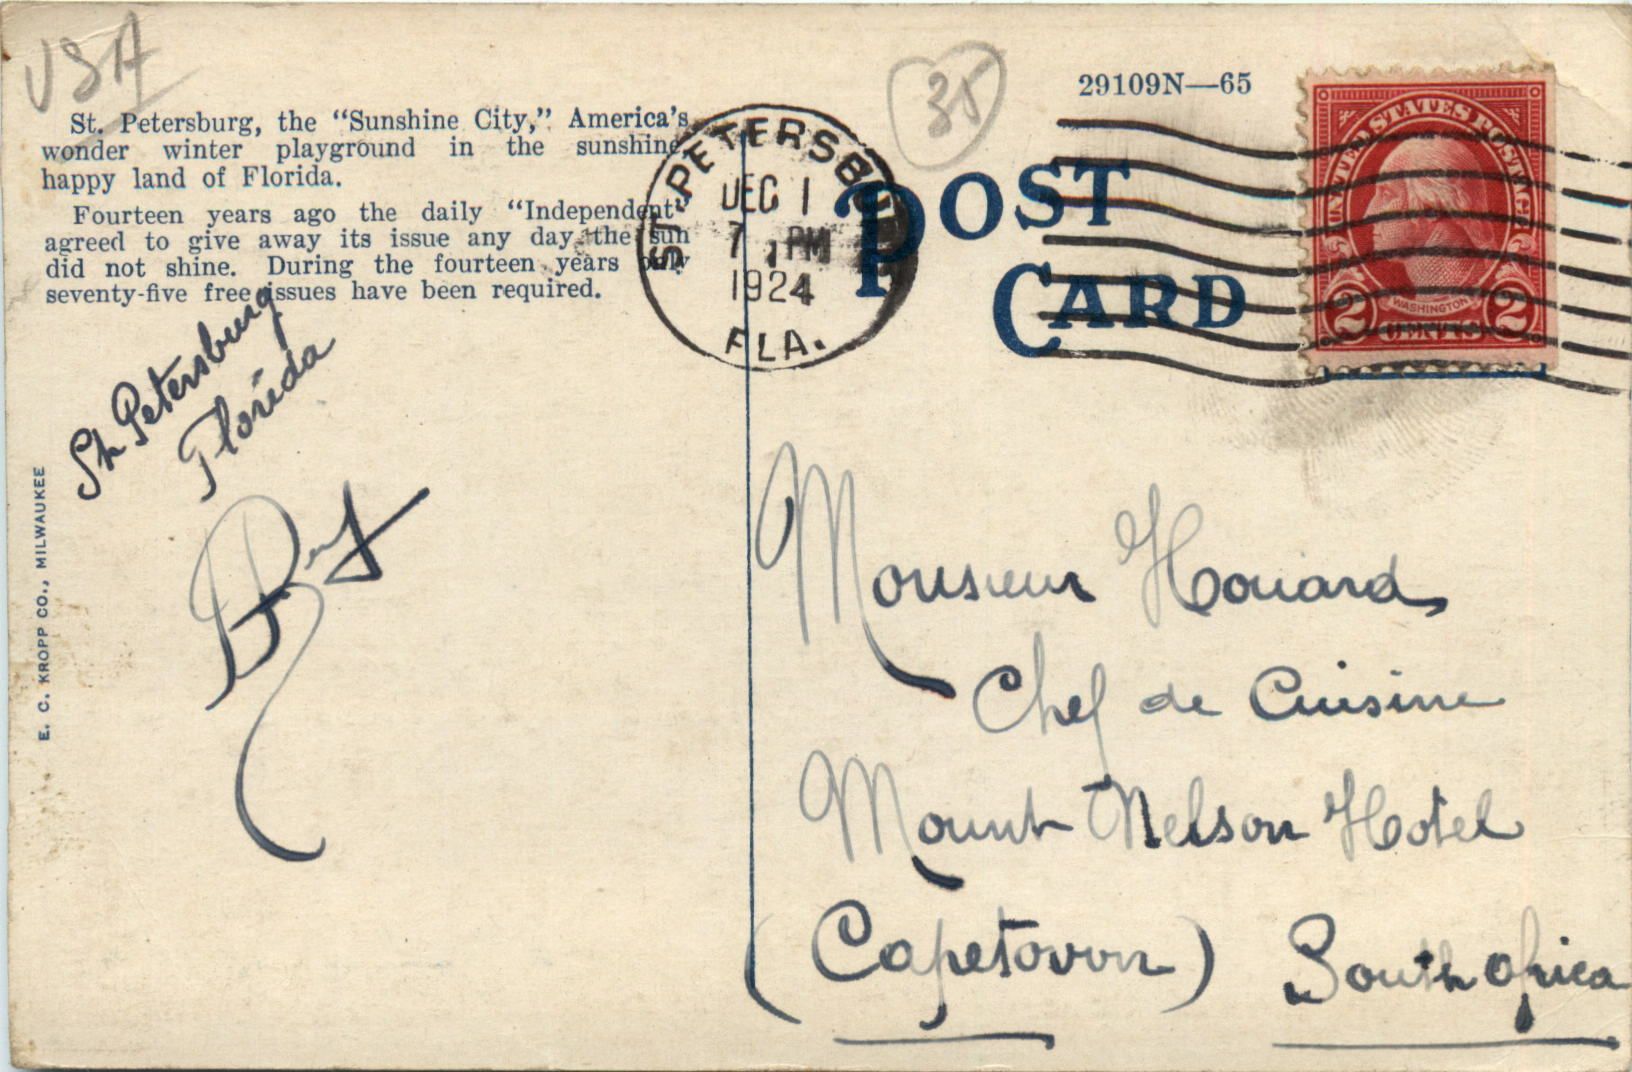 USA
35
29109N—65
St. Petersburg, the "Sunshine City," America's
wonder winter playground in the sunshine,
happy land of Florida.
Fourteen years ago the daily "Independent"
agreed to give away its issue any day the sun
did not shine. During the fourteen years only
seventy-five free issues have been required.
ST. PETERSBURG
DEC 1
7 PM
1924
FLA.
POST
CARD
UNITED STATES POSTAGE
WASHINGTON
2 CENTS 2
St Petersburg
Florida
E. C. KROPP CO., MILWAUKEE
Monsieur Houard
Chef de Cuisine
Mount Nelson Hotel
(Capetown) South Africa